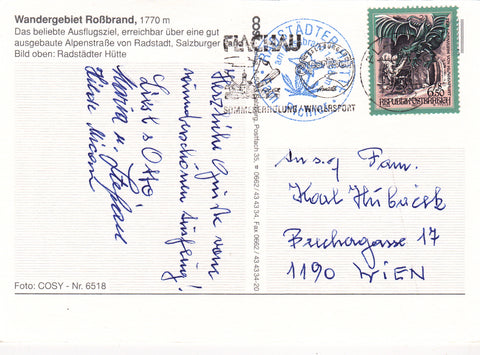 Wandergebiet Roßbrand, 1770 m
Das beliebte Ausflugsziel, erreichbar über eine gut
ausgebaute Alpenstraße von Radstadt, Salzburger
Bild oben: Radstädter Hütte
Herzliche Grüße vom
wunderschönen Ausflug!
Liesl & Otto
Maria u. Stefan
Foto: COSY - Nr. 6518
Postfach 35, ☎ 0662/43 43 34, Fax 0662/43 4334-20
FLACHAU
SOMMERERHOLUNG - WINTERSPORT
RADSTÄDTER HÜTTE
6.50
REPUBLIK ÖSTERREICH
An s.g. Fam.
Karl Hubáček
Brechergasse 17
1190 WIEN